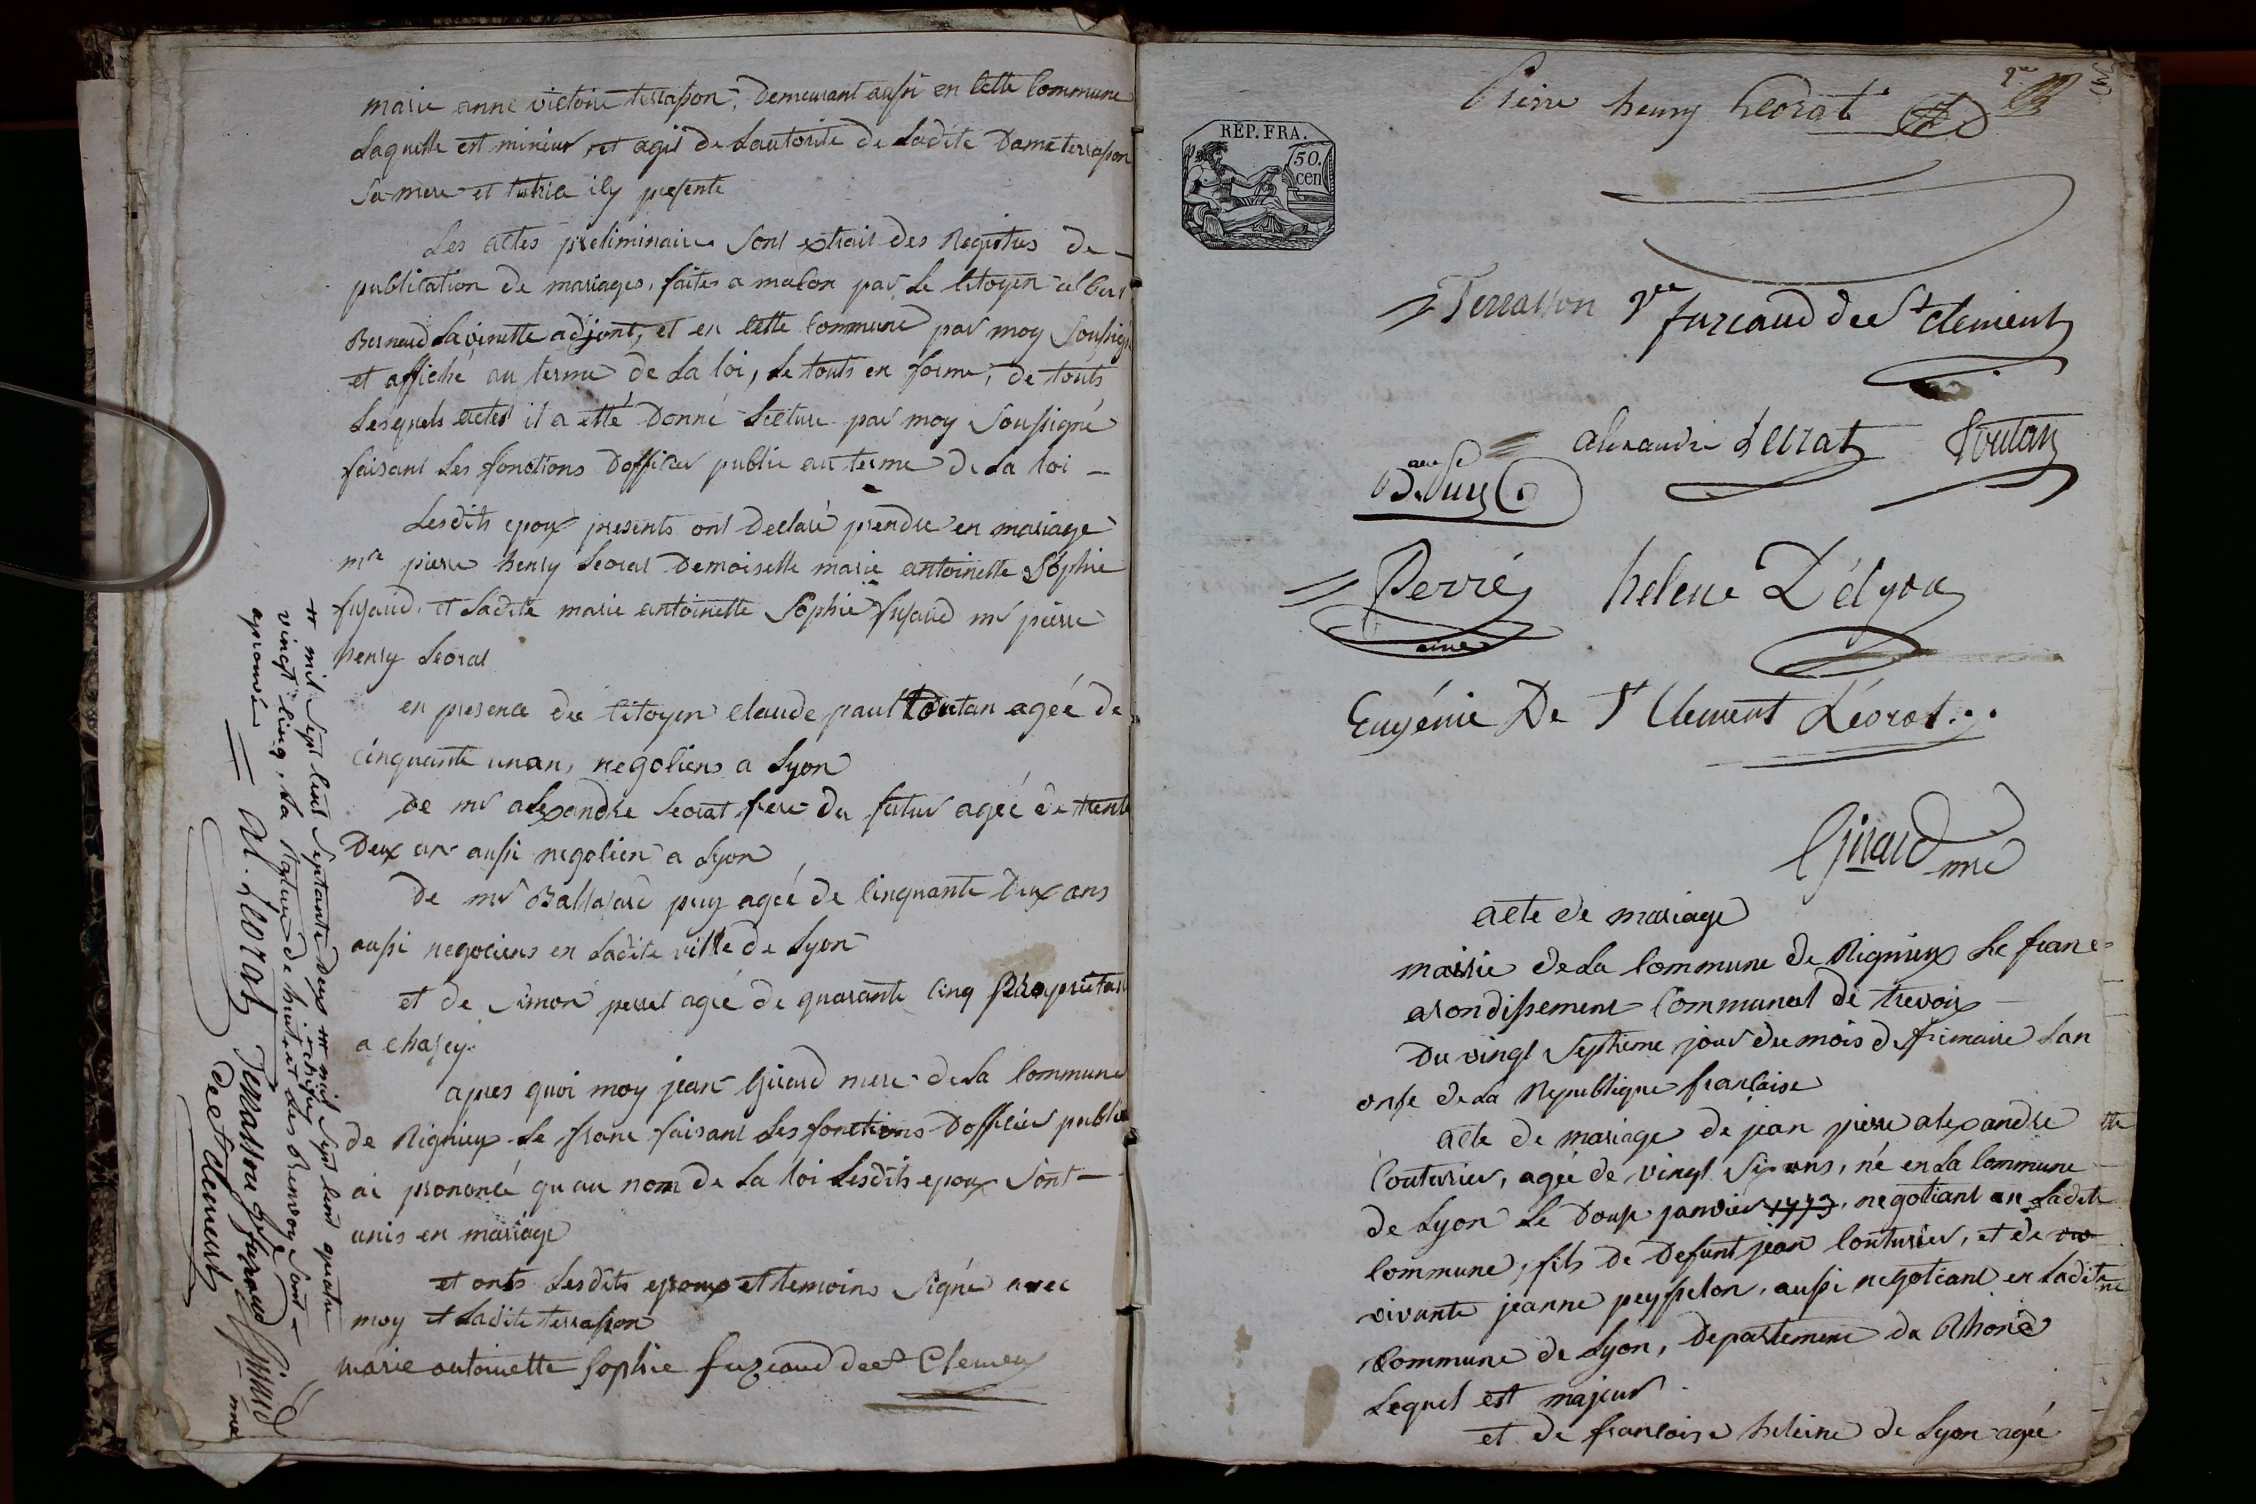 marie anne victoire terrasson, demeurant aussi en cette commune
Laquelle est mineur et agit de Lautorité de Ladite Dame terrasson
Sa mere et tutrice icy presente
Les actes preliminaire sont extrait des Registres de
publication de mariages, faites a macon par Le citoyen
Bernard Lavinette adjont, et en cette commune par moy soussigné
et affiché au terme de La loi, Le touts en forme, de touts
Lesquels actes il a etté Donné Lecture par moy soussigné
faisant Les fonctions Dofficier public au terme de La loi
Lesdits epoux presents ont Declaré prendre en mariage
mr pierre henry Leorat Demoiselle marie antoinette Sophie
fujaud, et Ladite marie antoinette Sophie fujaud mr pierre
henry Leorat
en presence du citoyen claude paul Toutan agée de
cinquante un an, negotiens a Lyon
De mr alexandre Leorat frere du futur agée de trente
Deux an aussi negotien a Lyon
De mr Baltasare puy agée de cinquante Deux ans
aussi negociens en Ladite ville de Lyon
et de Simon perret agée de quarante cinq Proprietaire
a chasey.
apres quoi moy jean Girard mere de La commune
de Rignieux Le franc faisant Les fonctions Dofficier public
ai prononcé qu au nom de La loi Lesdits epoux Sont
unis en mariage
et onts Lesdits epoux et temoins Signé avec
moy et Ladite terrasson
marie antoinette Sophie fuzeaud de St Clement
mil sept cent septante Deux mil sept cent quatre
vingt cinq, La Rature de huit et Les Renvoy Sont
aprouvée
al. Leorat Terrasson Ve fuzeaud Girard
de St clement mre
Pierre henry Leorat
REP. FRA.
50.
cen
Terrasson Ve fuzeaud de St clement
alexandre Leorat Toutan
Puy
Perré helene Délyon
ainé
Eugénie De St Clement Léorat
Girard
mre
acte de mariage
mairie de La commune de Rignieux Le franc
arondissement communal de trevoix
Du vingt Septieme jour du mois de frimaire Lan
onse de La Republique francaise
acte de mariage de jean pierre alexandre
Couturier, agée de vingt Six ans, né en La commune
de Lyon Le Douse janvier 1773, negotiant en Ladite
commune, fils de Defunt jean Couturier, et de
vivante jeanne peysselon, aussi negotiant en Ladite
Commune de Lyon, Departement du Rhone
Lequel est majeur
et de francoise heleine de Lyon agée